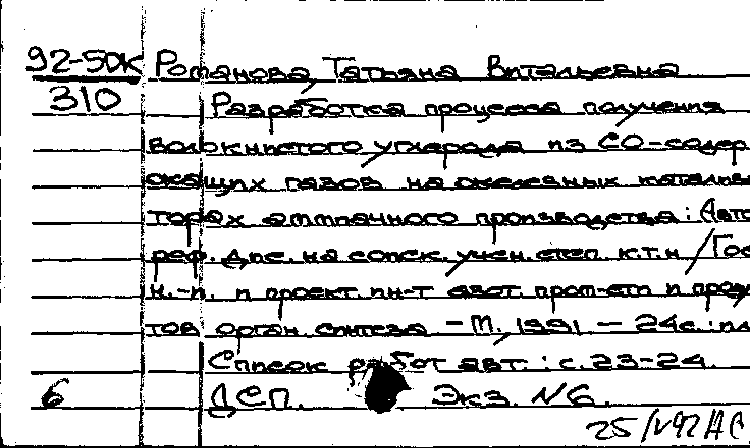 92-5DK Романова, Татьяна Витальевна
310 Разработка процесса получения
волокнистого углерода из СО-содер
жащих газов на железных катализа
торах аммиачного производства: Авто
реф. дис. на соиск. учен. степ. к.т.н /Гос
н.-и. и проект. ин-т азот. пром-сти и проду
тов орган. синтеза – М., 1991 – 24с.: ил
Список работ авт.: с. 23-24.
6 ДСП. Экз. №6.